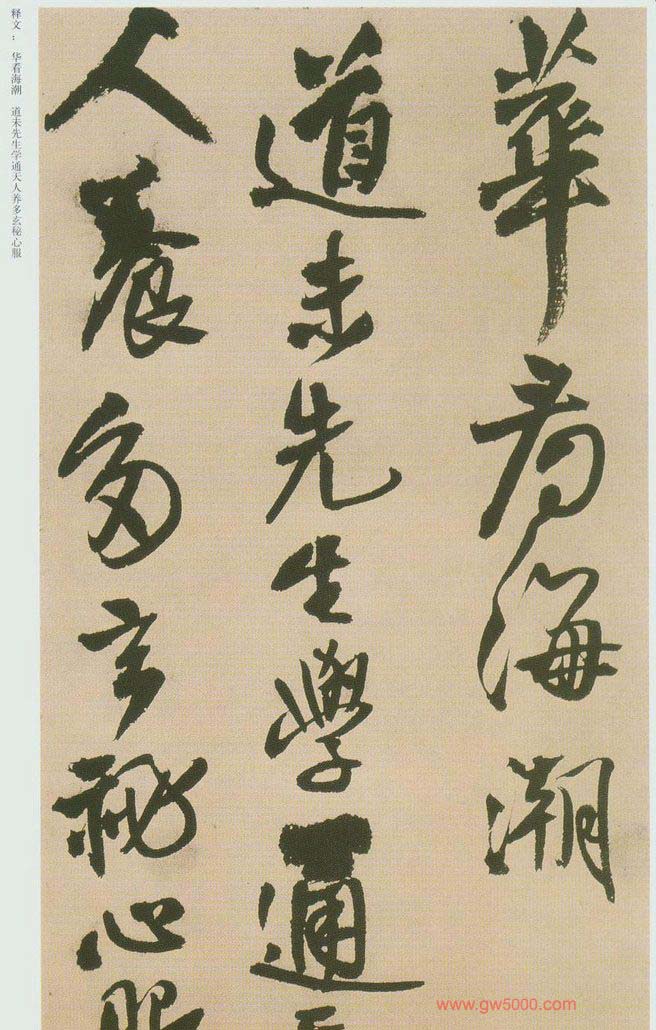 華看海潮
道未先生學通天
人養多玄秘心服
释文： 华看海潮 道未先生学通天人养多玄秘心服
www.gw5000.com